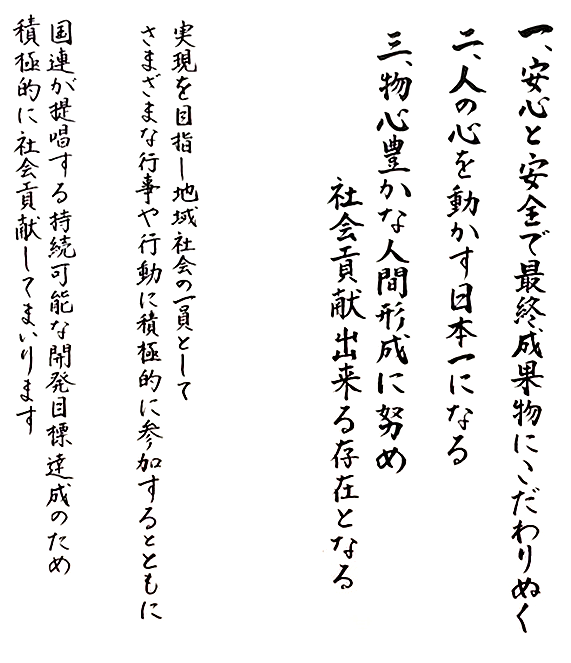 一、安心と安全で最終成果物にこだわりぬく
二、人の心を動かす日本一になる
三、物心豊かな人間形成に努め
社会貢献出来る存在となる
実現を目指し地域社会の一員として
さまざまな行事や行動に積極的に参加するとともに
国連が提唱する持続可能な開発目標達成のため
積極的に社会貢献してまいります